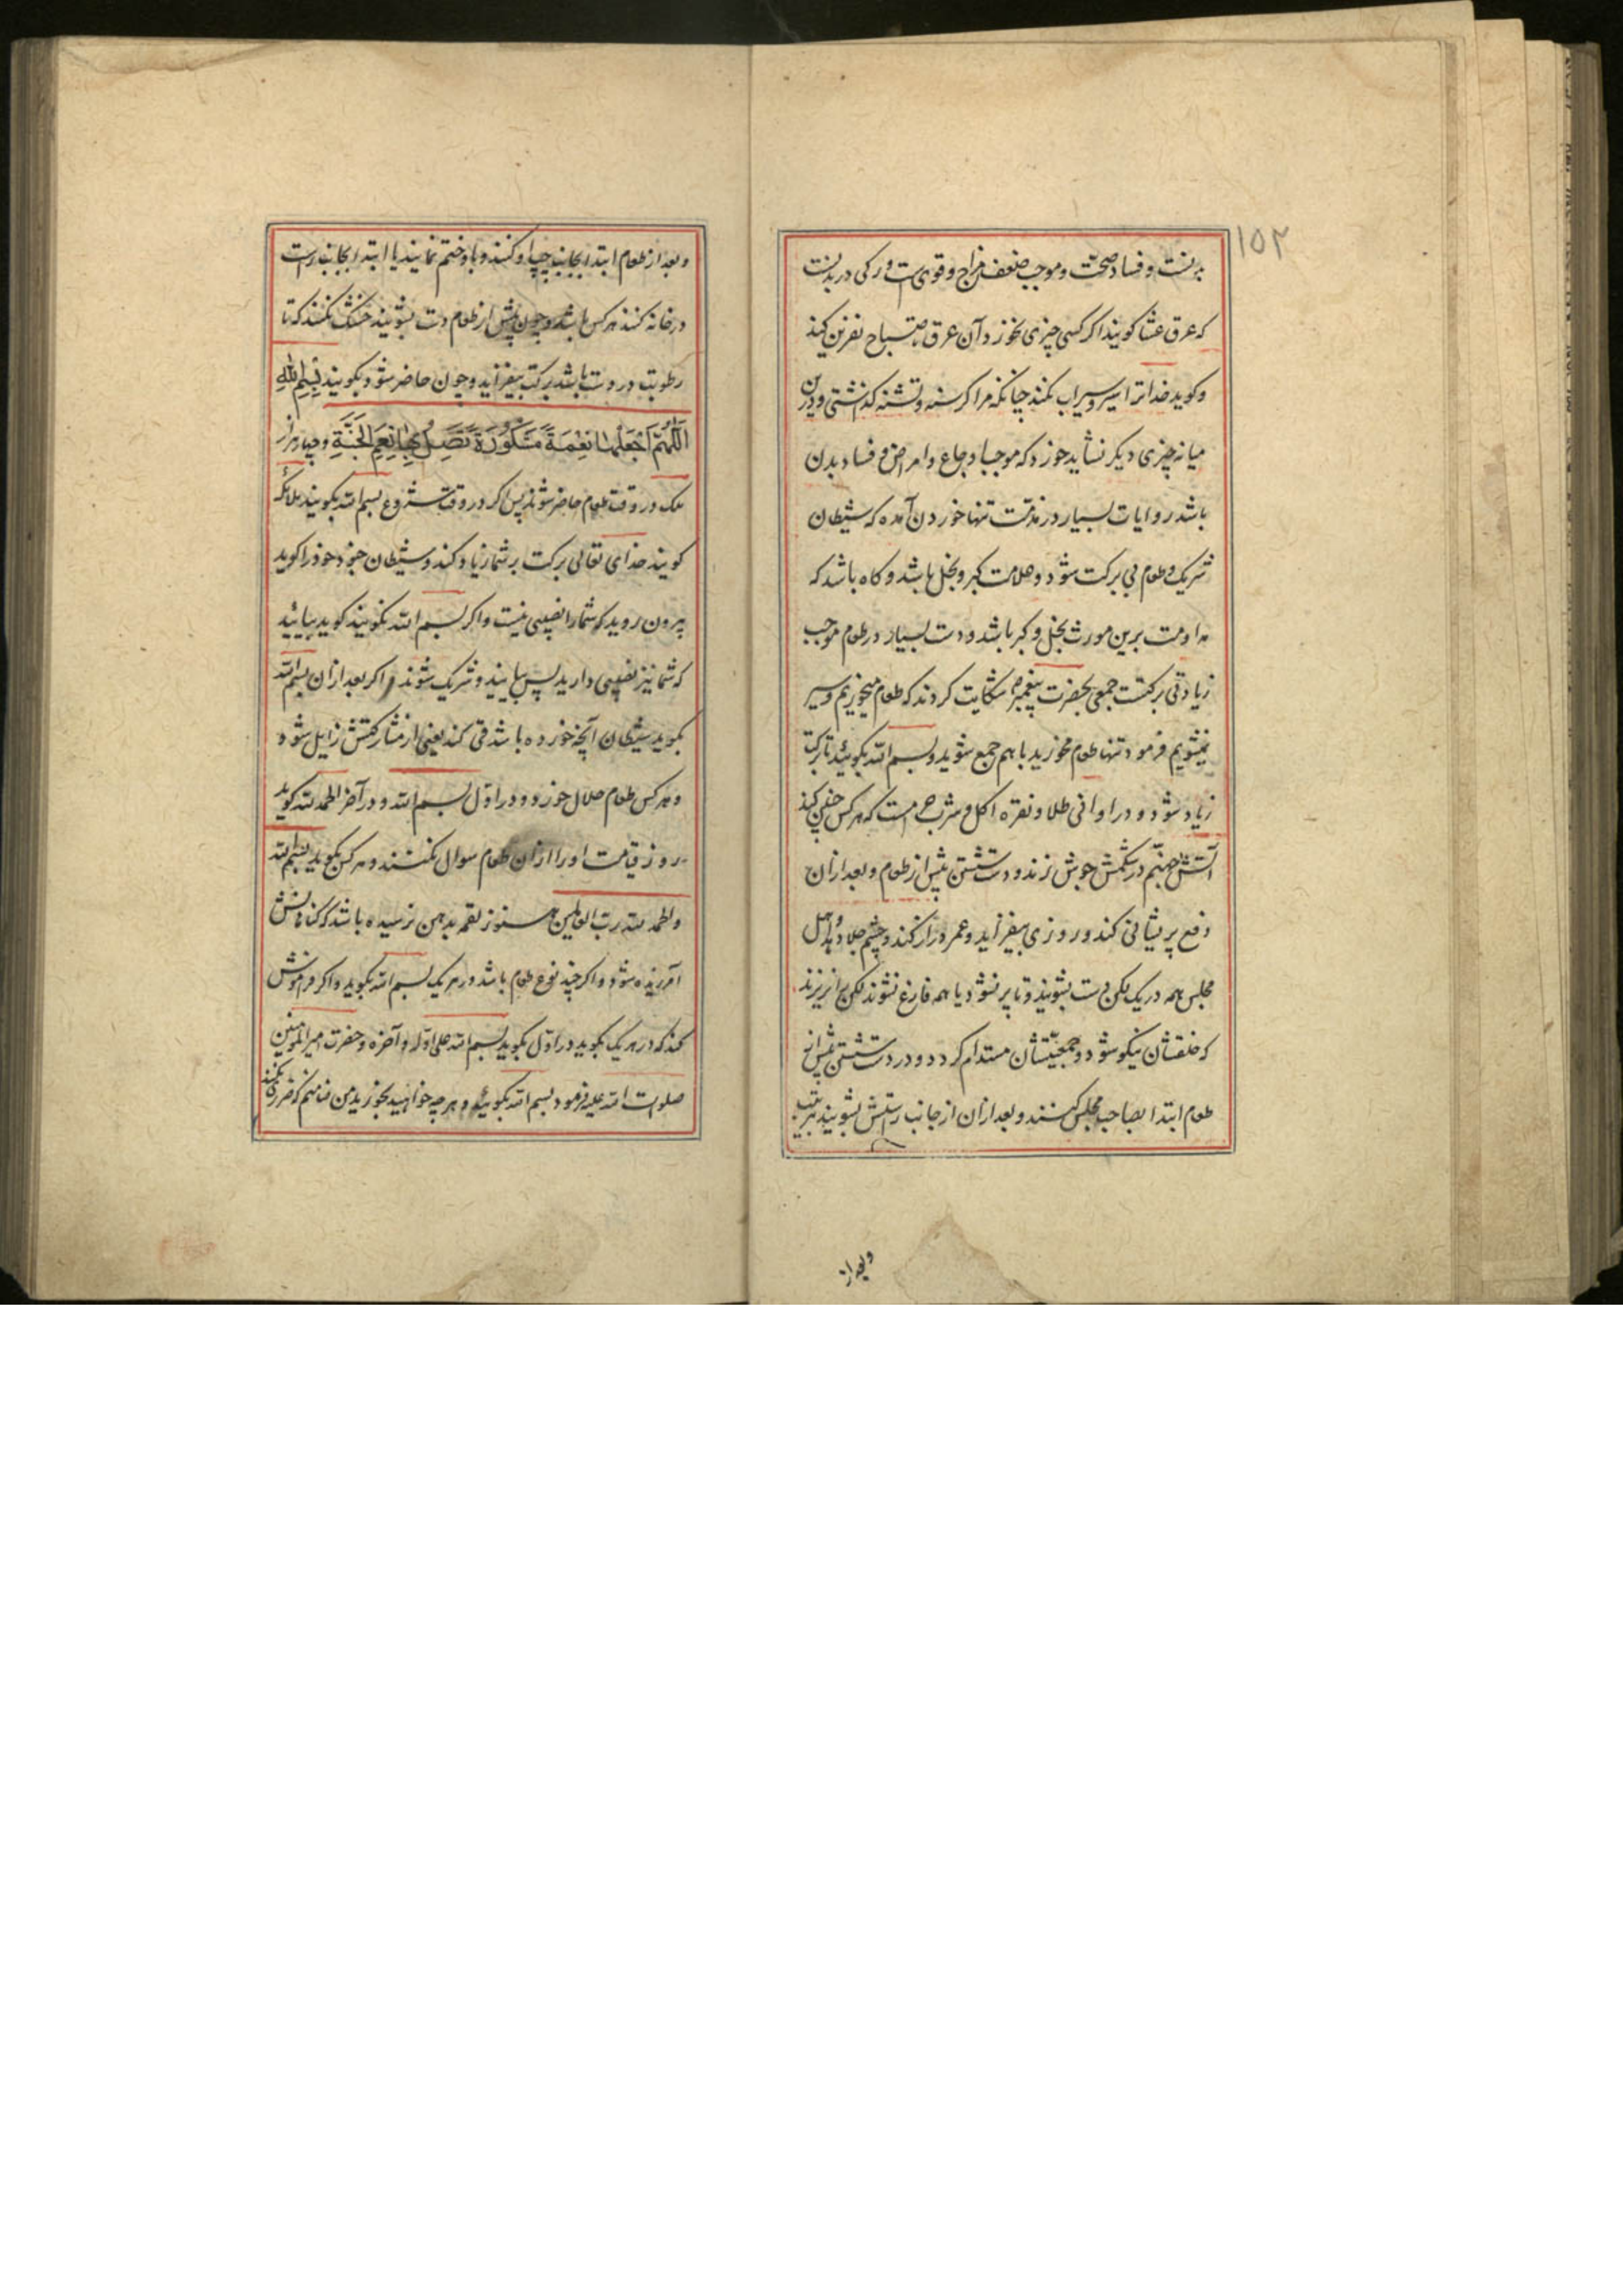 ۱۵۲
بدنست و فساد صحت و موجب ضعف مزاج و قوی است و رکی در بدنست
که عرق عشا کویند اکر کسی چیزی نخورد آن عرق تا صباح نفرین کند
و کوید خدا ترا سیر و سیراب نکند چنانکه مرا کرسنه و تشنه کذاشتی و درین
میانه چیزی دیکر نشاید خورد که موجب اوجاع و امراض و فساد بدن
باشد روایات بسیار در مذمت تنها خوردن آمده که شیطان
شریک و طعام بی برکت شود و علامت کبر و بخل باشد و کاه باشد که
مداومت برین مورث بخل و کبر باشد و دست بسیار در طعام موجب
زیادتی برکتست جمعی بحضرت پیغمبر شکایت کردند که طعام میخوریم و سیر
نمیشویم فرمود تنها طعام مخورید با هم جمع شوید و بسم الله بکوئید تا برکت
زیاد شود و در اوانی طلا و نقره اکل و شرب حرامست که هرکس چنین کند
آتش جهنم در شکمش جوش زند و دست شستن پیش از طعام و بعد از ان
دفع پریشانی کند و روزی بیفزاید و عمر دراز کند و چشم جلا دهد و اهل
مجلس همه در یک لکن دست بشویند و تا پر نشود یا همه فارغ نشوند لکن را نریزند
که خلقشان نیکو شود و جمعیتشان مستدام کردد و در دست شستن پیش از
طعام ابتدا بصاحب مجلس کنند و بعد از ان از جانب راستش بشویند بترتیب
و بعد از
و بعد از طعام ابتدا بجانب چپ او کنند و باو ختم نمایند یا ابتدا بجانب راست
در خانه کنند هر کس باشد و چون پیش از طعام دست بشویند خشک نکنند که تا
رطوبت در دست باشد برکت بیفزاید و چون حاضر شود بکویند بِسْمِ اللهِ
اَللّٰهُمَّ اجْعَلْهَا نِعْمَةً مَشْكُورَةً تَصِلُ بِهَا نَعِیمَ الْجَنَّةِ و چهار هزار
ملک در وقت طعام حاضر شوند پس اکر در وقت شروع بسم الله بکویند ملائکه
کویند خدای تعالی برکت بر شما زیاد کند و شیطان جنود خود را کوید
بیرون روید که شما را نصیبی نیست و اکر بسم الله نکویند کوید بیائید
که شما نیز نصیبی دارید پس بیایند و شریک شوند و اکر بعد از ان بسم الله
بکوید شیطان آنچه خورده باشد قی کند یعنی اثر مشارکتش زایل شود
و هر کس طعام حلال خورد و در اول بسم الله و در آخر الحمد لله کوید
روز قیامت او را از ان طعام سوال نکنند و هر کس بکوید بسم الله
و الحمد لله رب العالمین هنوز لقمه بدهن نرسیده باشد که کناهانش
آمرزیده شود و اکر چند نوع طعام باشد در هر یک بسم الله بکوید و اکر فراموش
کند که در هر یک بکوید در اول بکوید بسم الله علی اوله و آخره و حضرت امیر المومنین
صلوات الله علیه فرمود بسم الله بکوئید و هر چه خواهید بخورید من ضامنم که ضرر نکند